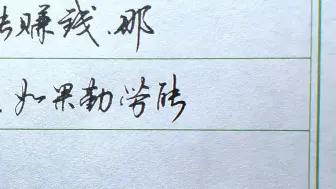 能赚钱.那
.如果勤劳能